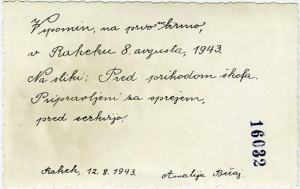 V spomin, na prvo "birmo",
v Rakeku 8. avgusta, 1943.
Na sliki: Pred prihodom škofa.
Pripravljeni za sprejem,
pred cerkvijo.
16032
Rakek, 12.8.1943. Amalija